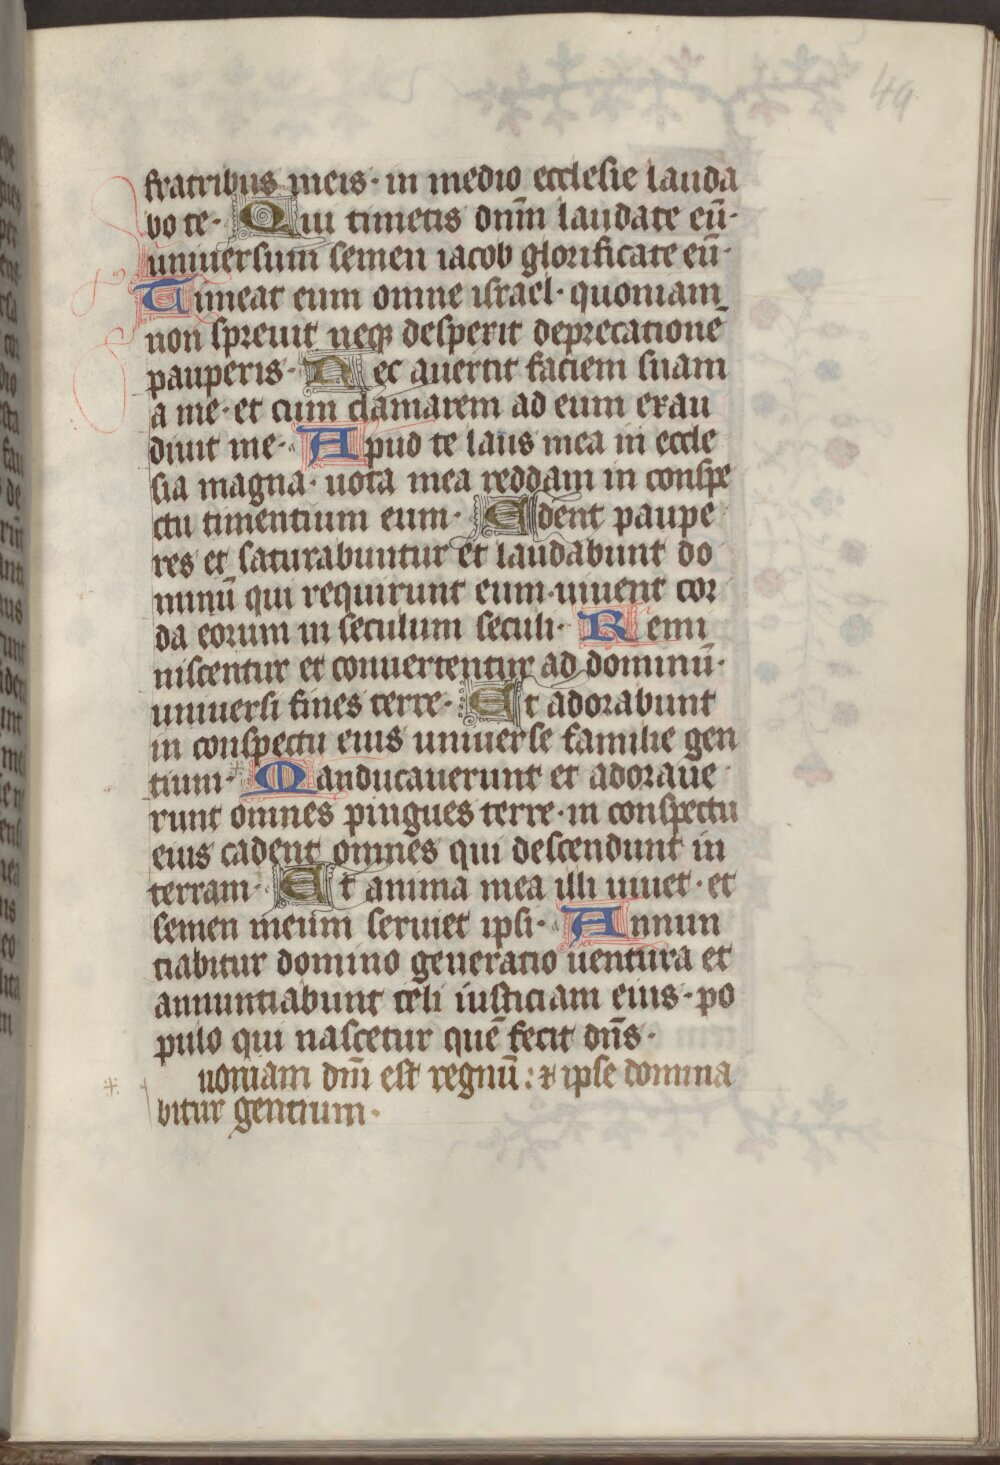 49
fratribus meis· in medio ecclesie lauda
bo te· Qui timetis dnm̄ laudate eū·
uniuersum semen iacob glorificate eū·
Timeat eum omne israel· quoniam
non spreuit neqꝫ desperit deprecationē
pauperis· Nec auertit faciem suam
a me· et cum clamarem ad eum exau
diuit me· Apud te laus mea in eccle
sia magna· uota mea reddam in conspe
ctu timentium eum· Edent paupe
res et saturabuntur et laudabunt do
minū qui requirunt eum· uiuent cor
da eorum in seculum seculi· Remi
niscentur et conuertentur ad dominū·
uniuersi fines terre· Et adorabunt
in conspectu eius uniuerse familie gen
tium· Manducauerunt et adoraue
runt omnes pingues terre· in conspectu
eius cadent omnes qui descendunt in
terram· Et anima mea illi uiuet· et
semen meum seruiet ipsi· Annun
tiabitur domino generatio uentura et
annuntiabunt celi iusticiam eius· po
pulo qui nascetur quē fecit dn̄s·
uoniam dnī est regnū: ⁊ ipse domina
bitur gentium·